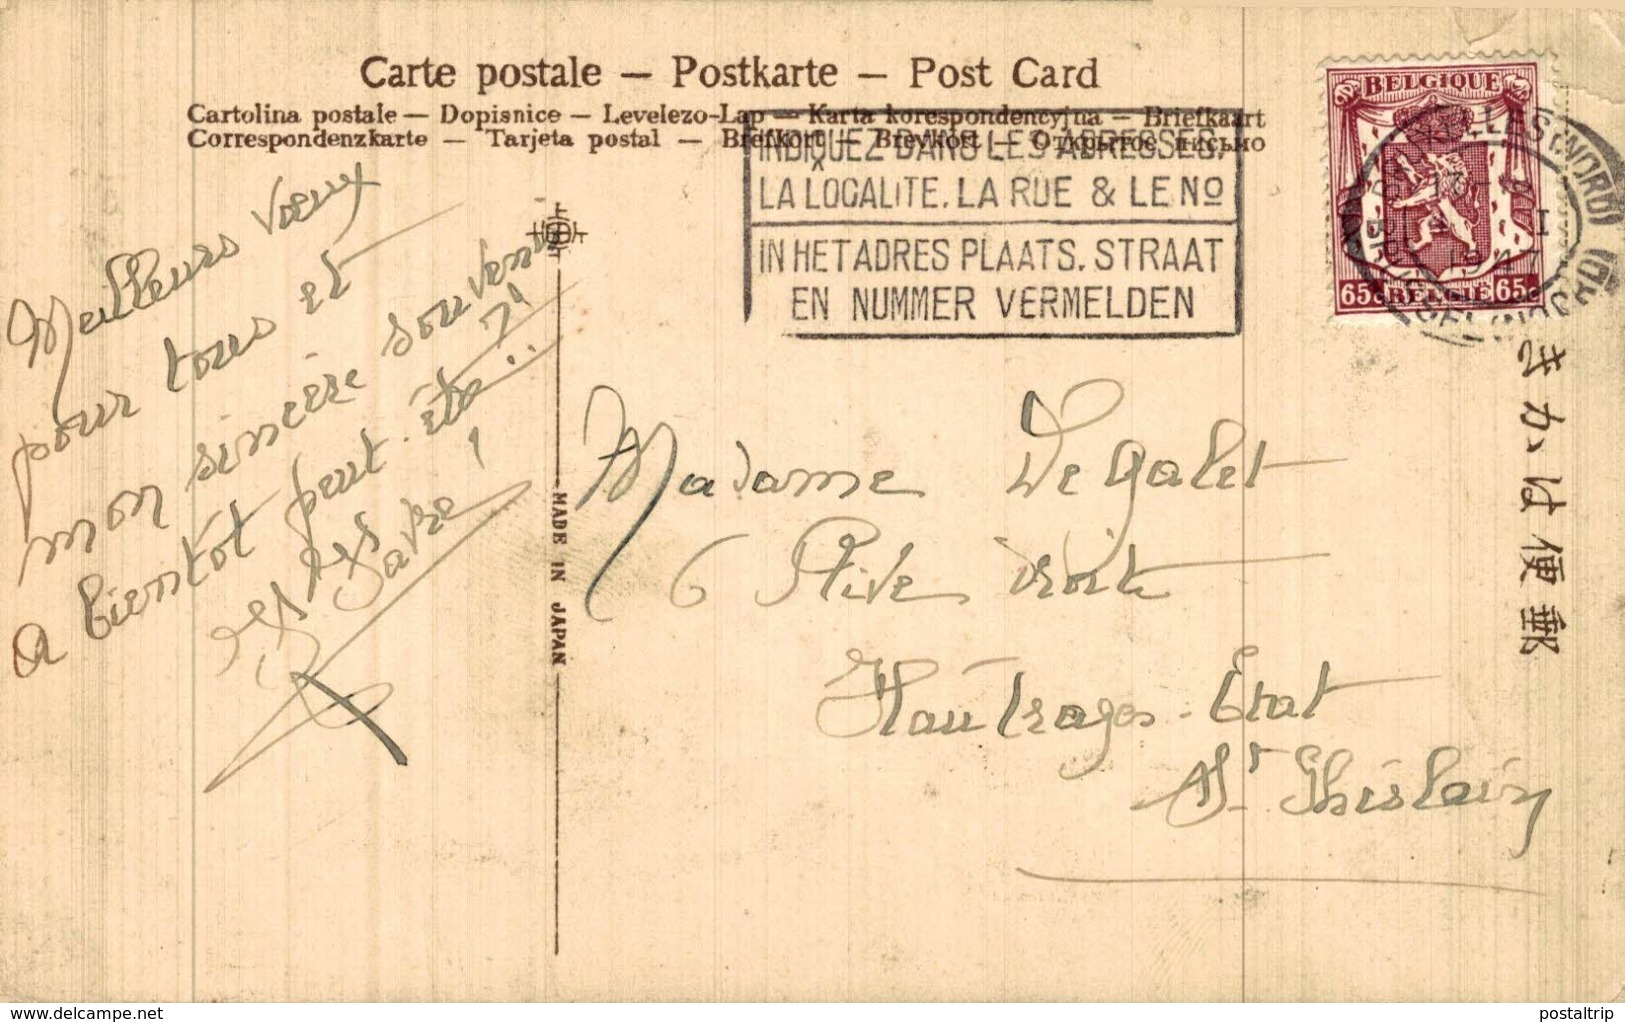 Carte postale — Postkarte — Post Card
Cartolina postale — Dopisnice — Levelezo-Lap — Karta korespondencyjna — Briefkaart
Correspondenzkarte — Tarjeta postal — Brefkort — Brevkort — Открытое письмо
INDIQUEZ DANS LES ADRESSES,
LA LOCALITE, LA RUE & LE No
IN HET ADRES PLAATS, STRAAT
EN NUMMER VERMELDEN
BELGIQUE
65c BELGIE 65c
BRUXELLES (NORD)
1947
郵便はかき
MADE IN JAPAN
Meilleurs voeux
pour tous et
mon sincère souvenir
A bientôt peut-être
Madame Degalet
6 Rive droite
Hautrages-Etat
St Ghislain
delcampe.net
postaltrip